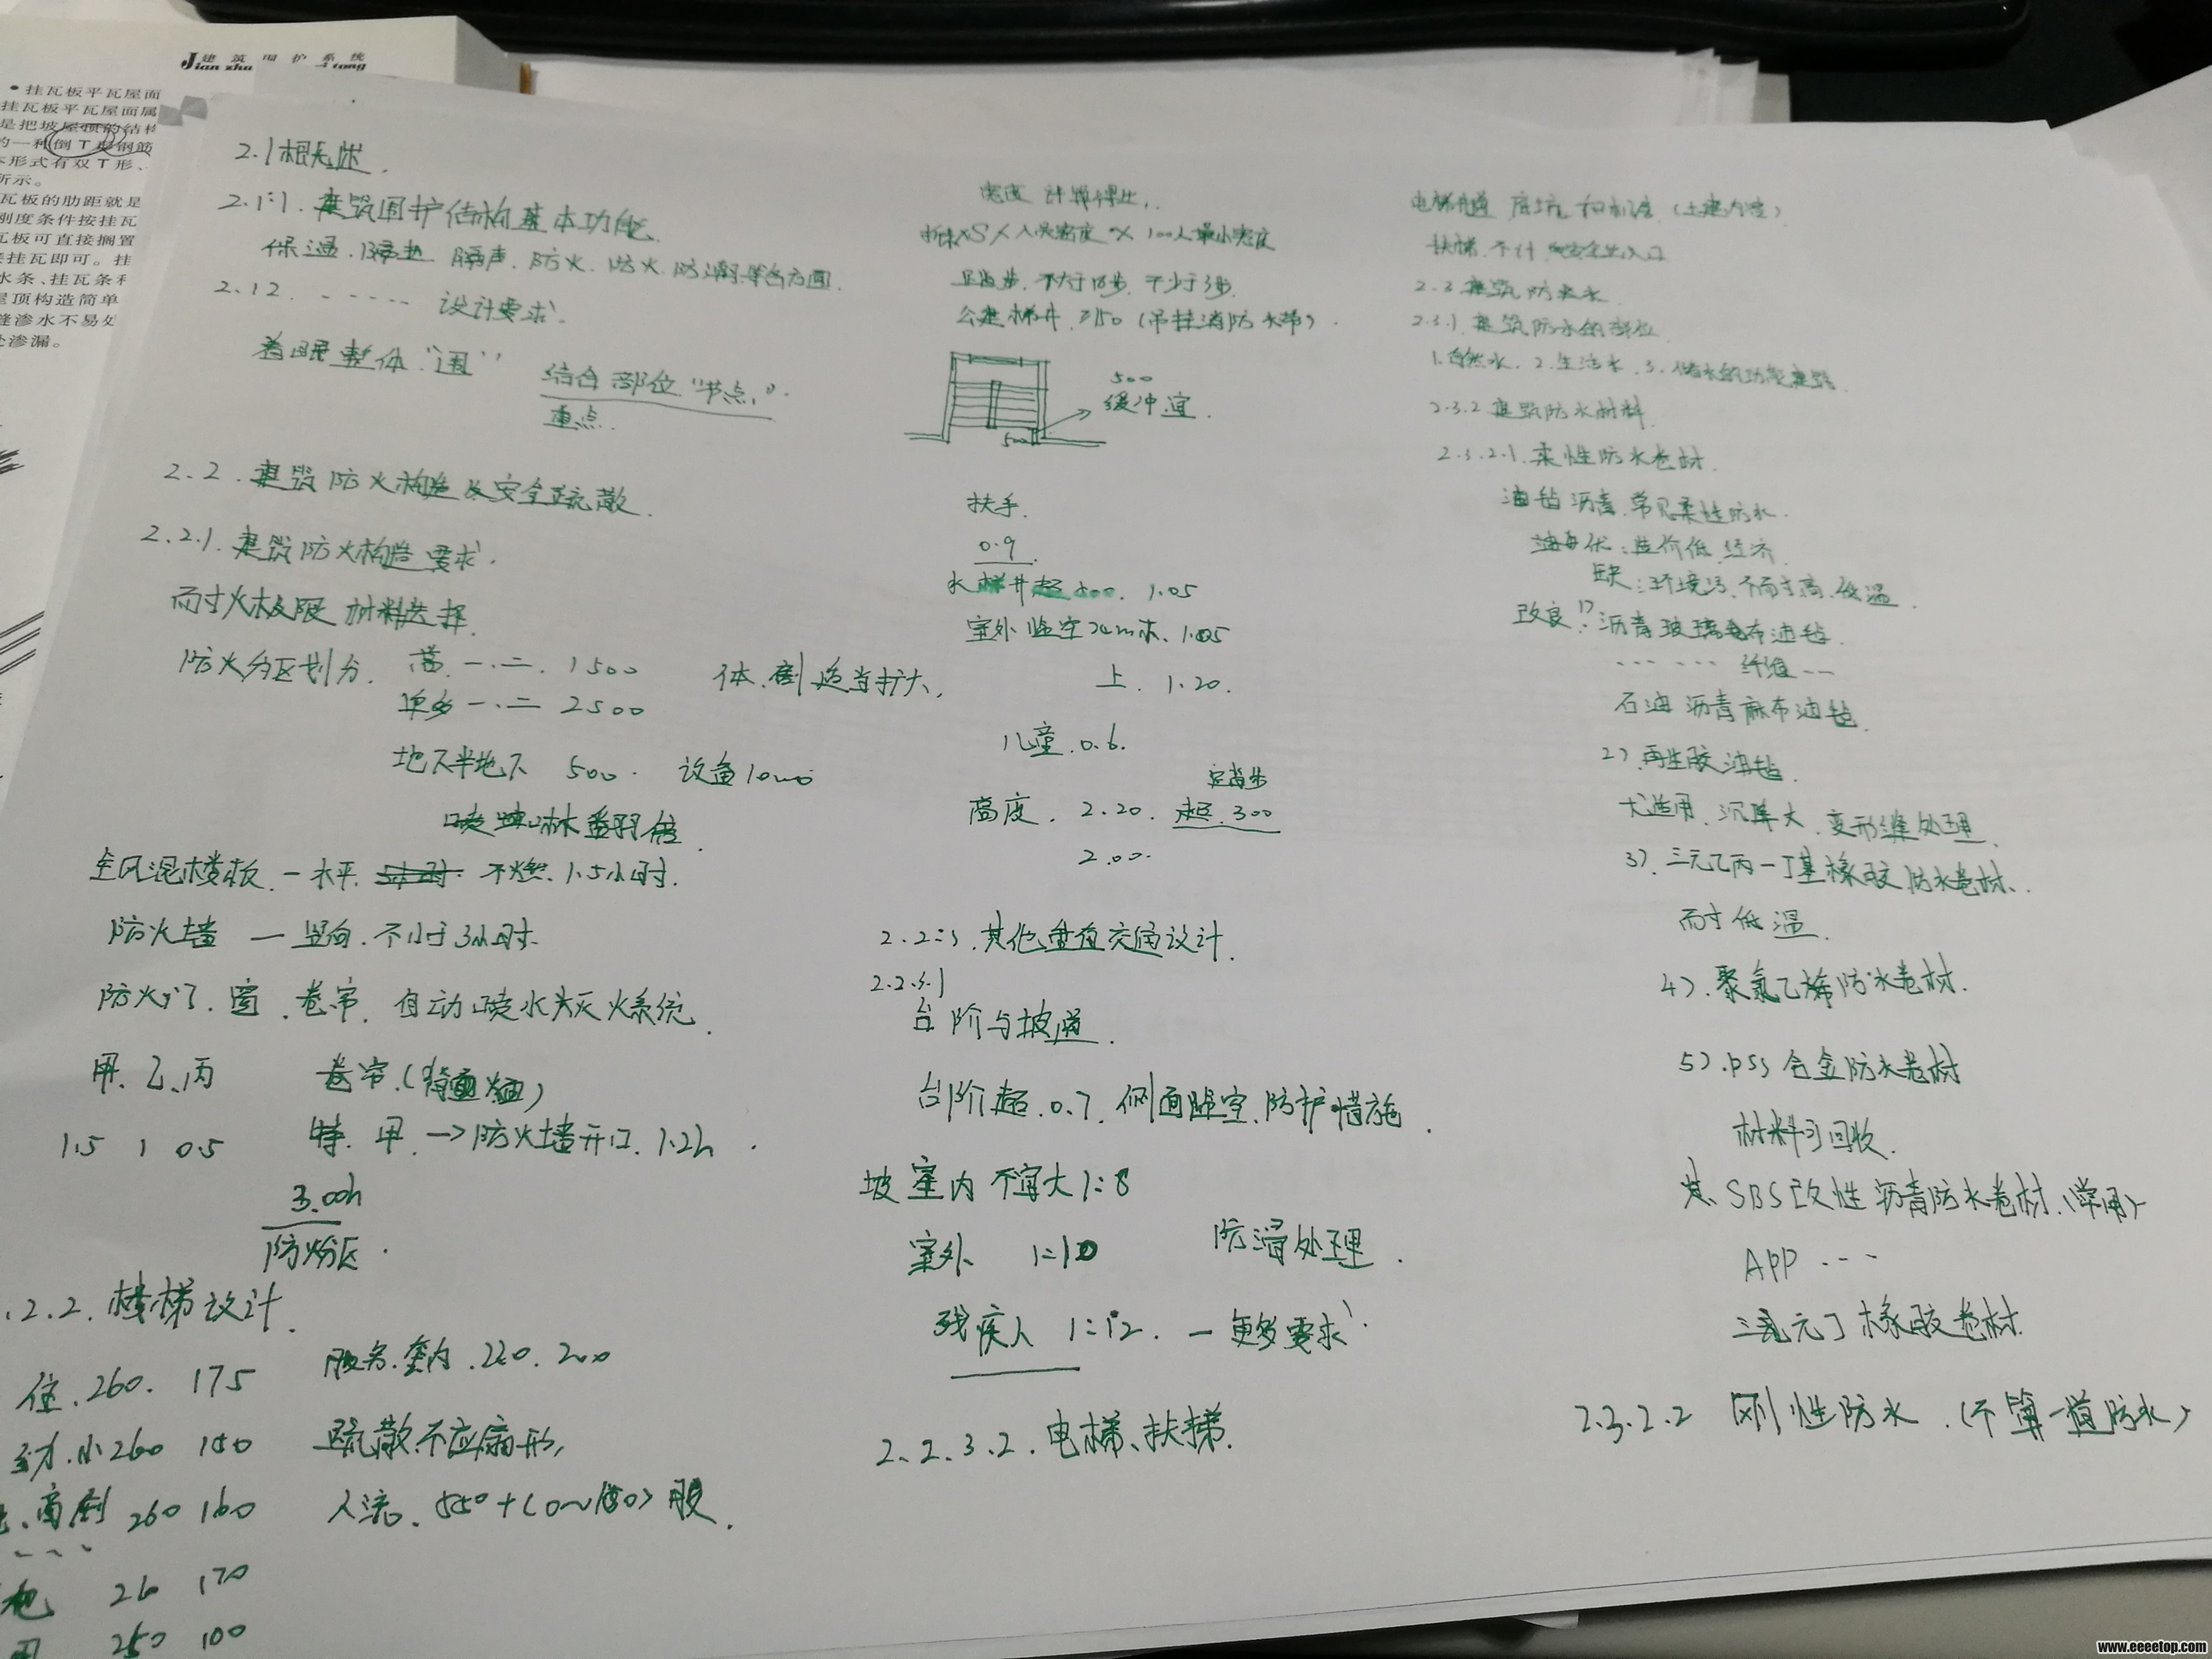 建筑围护系统
Jian zhu
tong
• 挂瓦板平瓦屋面
挂瓦板平瓦屋面属
是把坡屋顶的结构
的一种倒T型钢筋
本形式有双T形、
所示。
瓦板的肋距就是
刚度条件按挂瓦
瓦板可直接搁置
挂瓦即可。挂
水条、挂瓦条和
屋顶构造简单
缝渗水不易处
处渗漏。
2.1 概述.
2.1.1. 建筑围护结构基本功能.
保温.隔热.隔声.防火.防水.防潮等各方面.
2.1.2. ····· 设计要求.
着眼整体“围” 结合部位“节点”.
重点.
2.2. 建筑防火构造及安全疏散.
2.2.1. 建筑防火构造要求.
耐火极限 材料选择.
防火分区划分. 高 一.二. 1500 体.剧适当扩大.
单多一.二 2500
地下半地下 500. 设备1000
喷淋 翻倍.
钢混楼板.一水平. 不燃.1.5小时.
防火墙 — 竖向.不小于3小时.
防火门.窗.卷帘.自动喷水灭火系统.
甲.乙.丙 卷帘.(背面)
1.5 1 0.5 特.甲.→防火墙开口.1.2h.
3.00h
防火分区.
.2.2. 楼梯设计.
住.260. 175 服务.套内.220.200
幼.小260 150 疏散不应扇形,
商剧 260 160 人流.550+(0~150)股.
26 170
250 100
宽度 计算得出.
人员密度 × 100人最小宽度
不大于18步.不少于3步.
公建梯井.≥150(吊挂消防水带).
500
缓冲
500
扶手.
0.9
水梯井超500. 1.05
室外临空24m下.1.05
上. 1.20.
儿童.0.6.
高度. 2.20. 超.300
2.00.
2.2.3.其他垂直交通设计.
2.2.3.1
台阶与坡道.
台阶超.0.7.侧面临空.防护措施.
坡 室内 不宜大1:8
室外 1:10 防滑处理.
残疾人 1:12. — 更多要求.
2.2.3.2.电梯、扶梯.
电梯井道 底坑 和机房(土建内容)
扶梯.不计 安全出入口
2.3 建筑防水.
2.3.1.建筑防水的部位.
1.自然水.2.生活水.3.储水的功能建筑.
2.3.2 建筑防水材料.
2.3.2.1.柔性防水卷材.
油毡沥青.常见柔性防水.
优:造价低.经济.
缺:环境污.不耐高.低温.
改良:1)沥青玻璃布油毡.
······ 纤维--
石油沥青麻布油毡.
2).再生胶油毡.
尤适用.沉降大.变形缝处理.
3).三元乙丙—丁基橡胶防水卷材.
耐低温.
4).聚氯乙烯防水卷材.
5).pss合金防水卷材
材料可回收.
SBS改性沥青防水卷材.(常用)
APP ···
三元丁橡胶卷材.
2.3.2.2 刚性防水.(不算一道防水)
www.eeeetop.com